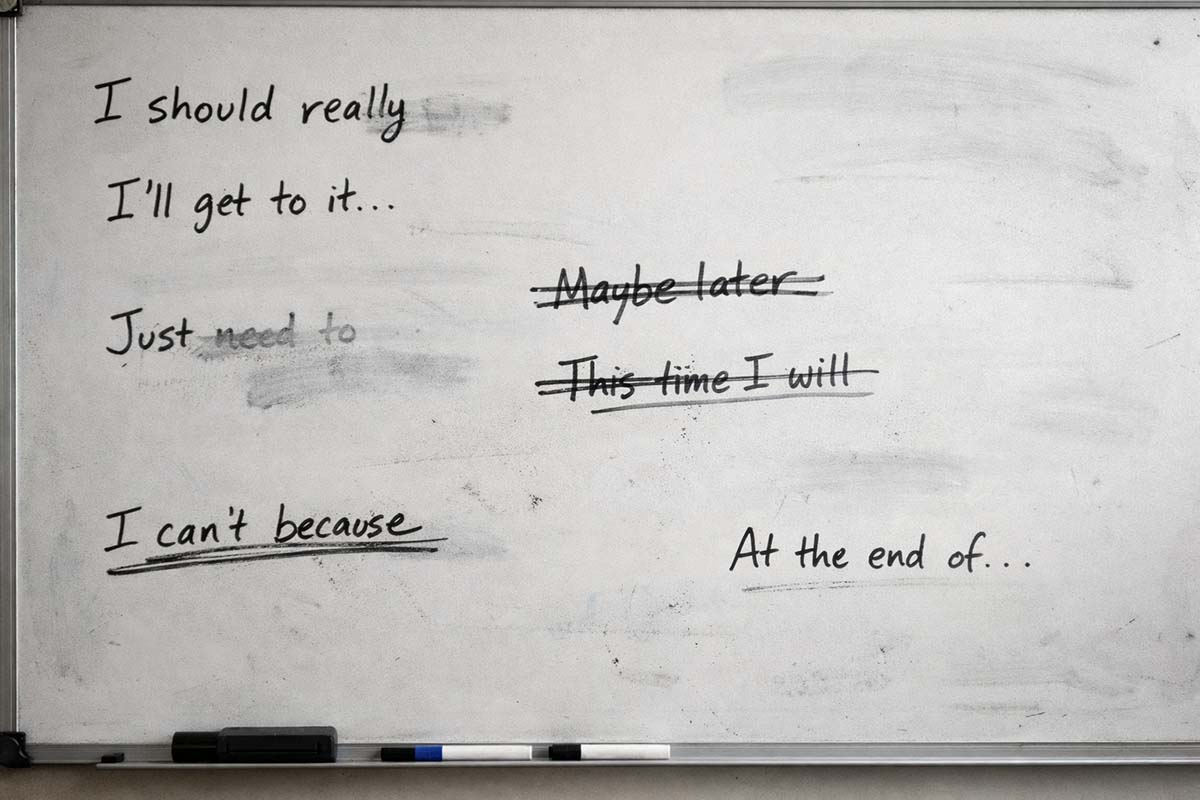 I should really
I'll get to it...
Maybe later
Just need to
This time I will
I can't because
At the end of...